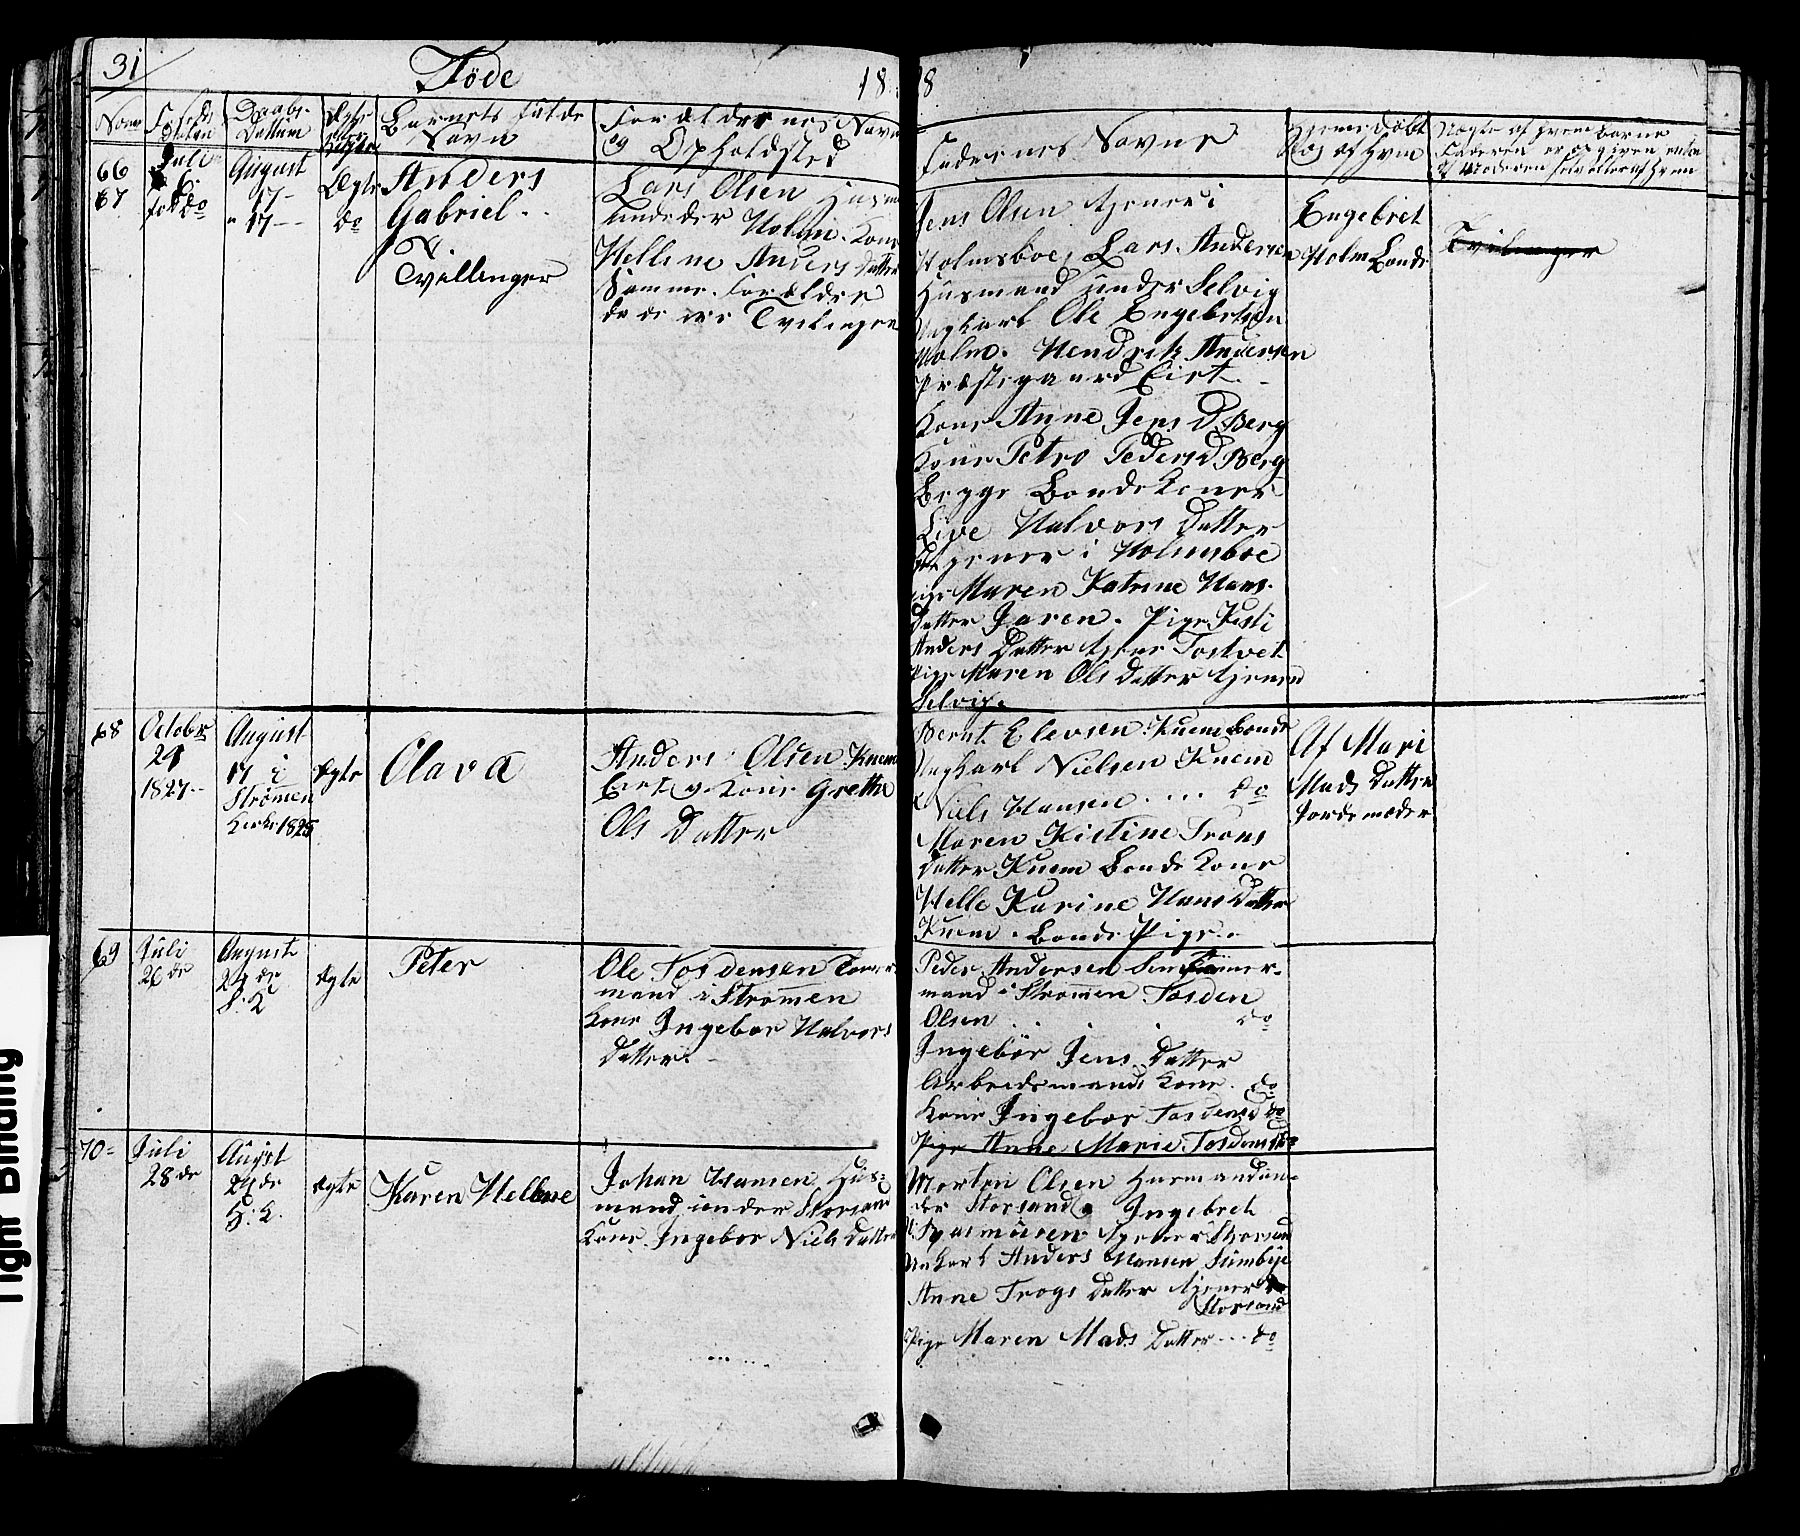 31
Føde
18 8
Daabs-
Dattum
Ægte
Barnets fulde
Navn
Forældrenes Navn
og Opholdsted
Fadernes Navne
66
67
Juli
do
August
17-
" 17--
Ægte
do
Anders
Gabriel..
Tvillinger
Lars Olsen
under Holm. Kone
Hellene Anders Datter
Samme Forældre
da de ere Tvilinger
Jens Olsen tjener i
Holmsboe, Lars Andersen
Husmand under Selvig
Ungkarl Ole Engebretsen
Holm. Hendrik Andersen
Præstegaard Eiet.-
Kone Anne Jens D Berg
Kone Petro Peders D Berg
Begge Bonde Koner
Live Halvors Datter
Tjener i Holmsboe
Pige Maren Katrine Hans-
Datter Jaren. Pige Kisti
Anders Datter tjener Tostvet
Pige Maren Ols Datter tjener
Selvig.
Engebret
Holm Bonde
Tvilinger
68
October
24
1827--
August
17 i
Strømen
Kirke 1828
Ægte
Olava
Anders Olsen Knem
Eiet og Kone Grethe
Ols Datter
Bernt Elevsen Knem Bonde
Ungkarl Nielsen Knem
Niels Hansen .... do
Maren Kistine Trons
Datter Knem Bonde Kone
Helle Karine Hans Datter
Knem. Bonde Pige.
Af Mari
Mads Datter
Jordemoder
69
Juli
26de
August
24de
S: K
Ægte
Peter
Ole Tosdensen Tømer-
mand i Strømen
Kone Ingebor Halvors
Datter. -
Peder Andersen
mand i Strømen Tosden
Olsen . . . do
Ingebør Jens Datter
Arbeidsmands Kone. do
Kone Ingebor Tosdens D do
Pige Anne Marie Tosdens
70=
Juli
28de
August
24de
H: K.
Ægte
Karen Hellene
Johan Hansen Hus-
mand under Storsand
Kone Ingebor Niels Datter
Morten Olsen Husmand un-
der Storsand Ingebret
Rasmusen tjener i Storsand
Unkarl Anders Hansen Sümbye
Anne Trogs Datter tjener
Storsand
Pige Maren Mads Datter... do
Tight Binding